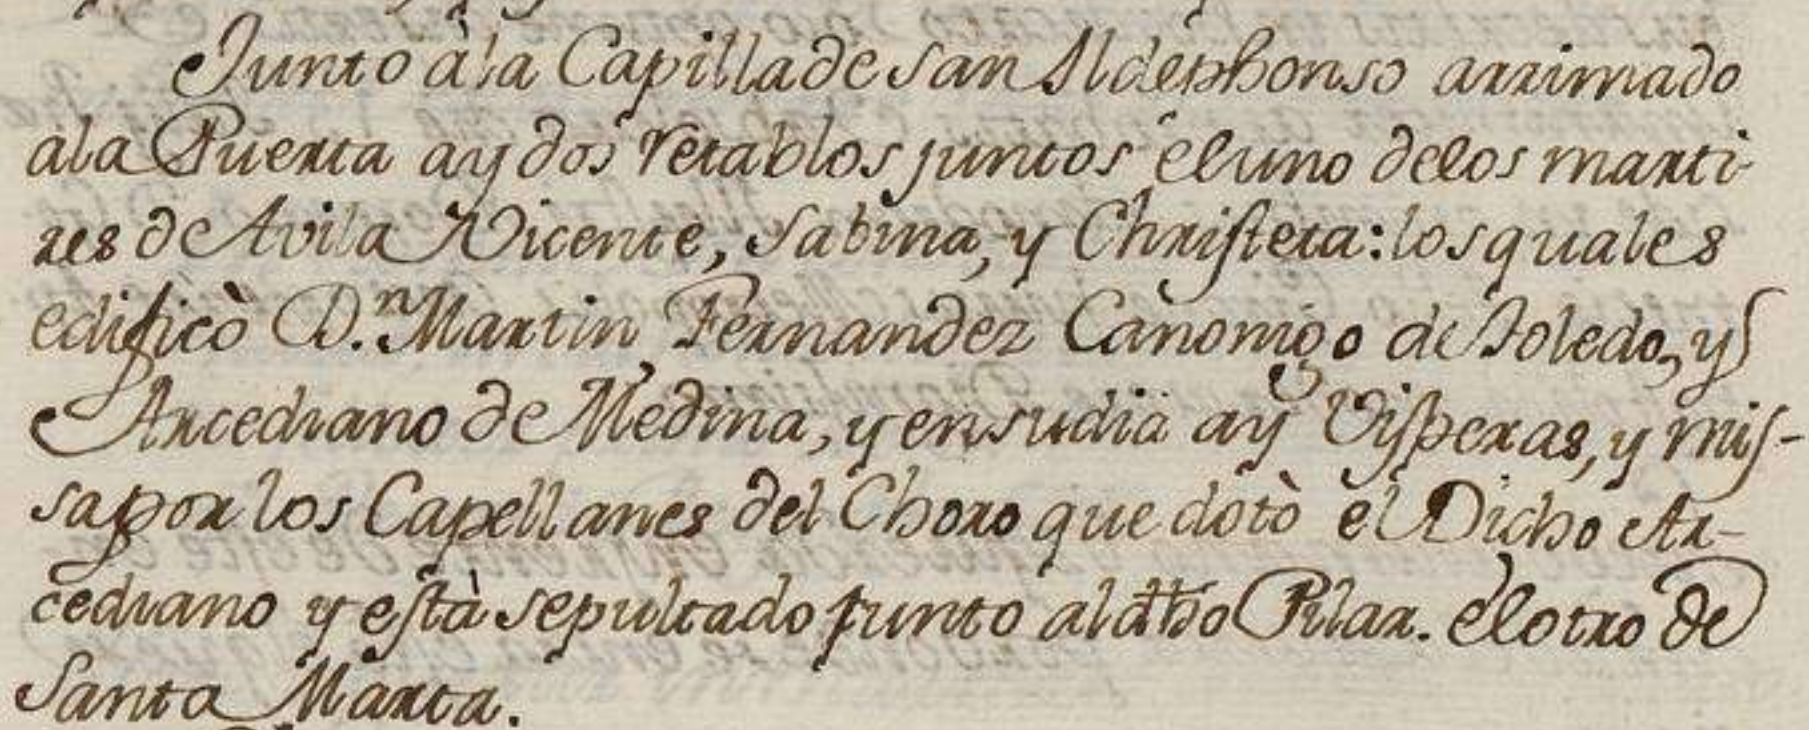 Junto à la Capilla de san Ildephonso arrimado
a la Puerta ay dos retablos juntos el uno de los marti-
res de Avila Vicente, Sabina, y Christeta: los quales
edificò D.n Martin Fernandez Canonigo de Toledo, y
Arcediano de Medina, y en su dia ay Visperas, y mis-
sa por los Capellanes del Choro que dotò el Dicho Ar-
cediano y està sepultado junto al dho Pilar. el otro de
Santa Marta.